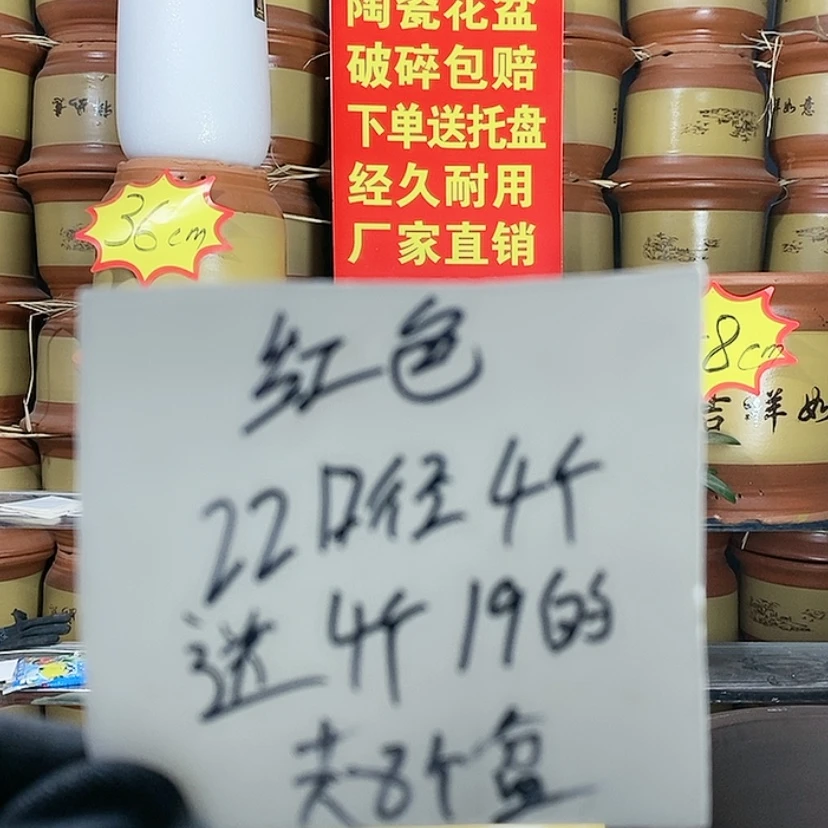 陶瓷花盆
破碎包赔
下单送托盘
经久耐用
厂家直销
36cm
8cm
吉祥如
如意
红色
22口径4个
送4个19的
共8个盆